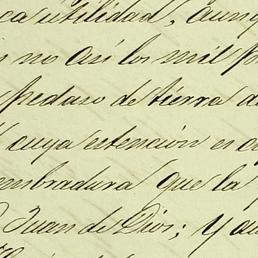 ca utilidad, aunq
no así los mil p
pedazo de tierra a
cuya estención es
embradura que la
Juan de Dios; y au